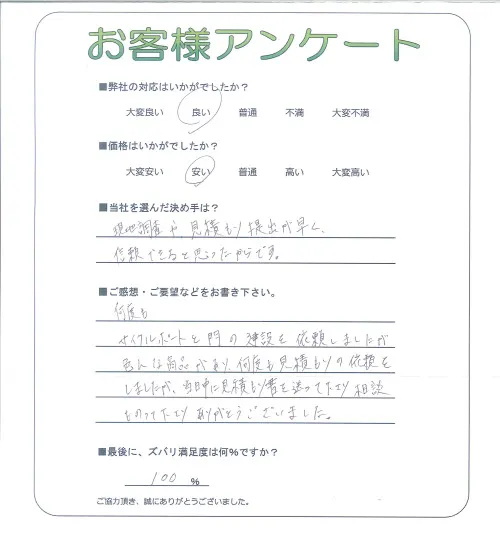 お客様アンケート
■弊社の対応はいかがでしたか？
大変良い 良い 普通 不満 大変不満
■価格はいかがでしたか？
大変安い 安い 普通 高い 大変高い
■当社を選んだ決め手は？
現地調査や、見積もり提出が早く、
信頼できると思ったからです。
■ご感想・ご要望などをお書き下さい。
何度も
サイクルポートと門の建設を依頼しましたが
色んな商品があり、何度も見積もりの依頼を
しましたが、当日中に見積もり書を送って下さり 相談
ものって下さり ありがとうございました。
■最後に、ズバリ満足度は何%ですか？
100 %
ご協力頂き、誠にありがとうございました。